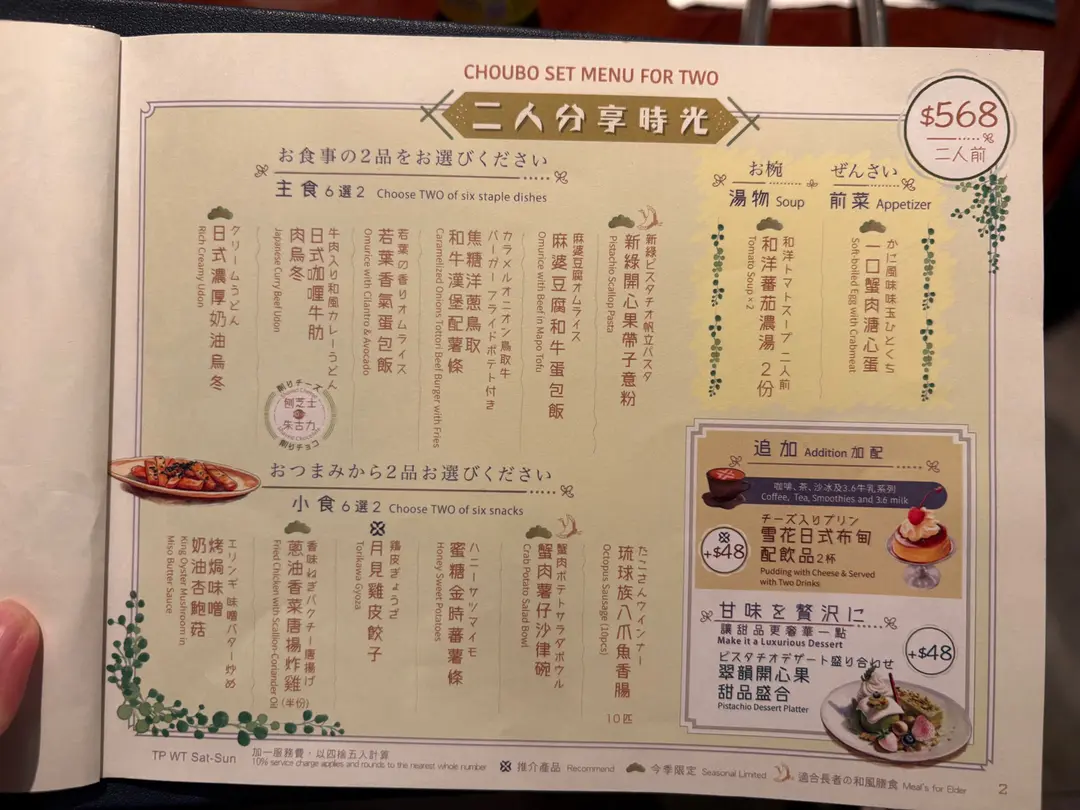 CHOUBO SET MENU FOR TWO
二人分享時光
$568
二人前
お食事の2品をお選びください
主食 6選2 Choose TWO of six staple dishes
新緑ピスタチオ帆立パスタ
新綠開心果帶子意粉
Pistachio Scallop Pasta
麻婆豆腐オムライス
麻婆豆腐和牛蛋包飯
Omurice with Beef in Mapo Tofu
カラメルオニオン鳥取牛
バーガー フライドポテト付き
焦糖洋蔥鳥取
和牛漢堡配薯條
Caramelized Onions Tottori Beef Burger with Fries
若葉の香りオムライス
若葉香氣蛋包飯
Omurice with Cilantro & Avocado
牛肉入り和風カレーうどん
日式咖喱牛肋
肉烏冬
Japanese Curry Beef Udon
クリームうどん
日式濃厚奶油烏冬
Rich Creamy Udon
削りチーズ
刨芝士
朱古力
削りチョコ
お椀
湯物 Soup
和洋トマトスープ 二人前
和洋蕃茄濃湯 2份
Tomato Soup × 2
ぜんさい
前菜 Appetizer
かに風味味玉ひとくち
一口蟹肉溏心蛋
Soft-boiled Egg with Crabmeat
おつまみから2品お選びください
小食 6選2 Choose TWO of six snacks
たこさんウインナー
琉球族八爪魚香腸
10匹
Octopus Sausage (10pcs)
蟹肉ポテトサラダボウル
蟹肉薯仔沙律碗
Crab Potato Salad Bowl
ハニーサツマイモ
蜜糖金時蕃薯條
Honey Sweet Potatoes
鶏皮ぎょうざ
月見雞皮餃子
Torikawa Gyoza
香味ねぎパクチー唐揚げ
蔥油香菜唐揚炸雞(半份)
Fried Chicken with Scallion-Coriander Oil
エリンギ 味噌バター炒め
烤焗味噌
奶油杏鮑菇
King Oyster Mushroom in
Miso Butter Sauce
追加 Addition 加配
咖啡、茶、沙冰及3.6牛乳系列
Coffee, Tea, Smoothies and 3.6 milk
+$48
チーズ入りプリン
雪花日式布甸
配飲品2杯
Pudding with Cheese & Served
with Two Drinks
甘味を贅沢に
讓甜品更奢華一點
Make it a Luxurious Dessert
+$48
ピスタチオデザート盛り合わせ
翠韻開心果
甜品盛合
Pistachio Dessert Platter
TP WT Sat-Sun
加一服務費，以四捨五入計算
10% service charge applies and rounds to the nearest whole number
推介產品 Recommend
今季限定 Seasonal Limited
適合長者の和風膳食 Meal's for Elder
2